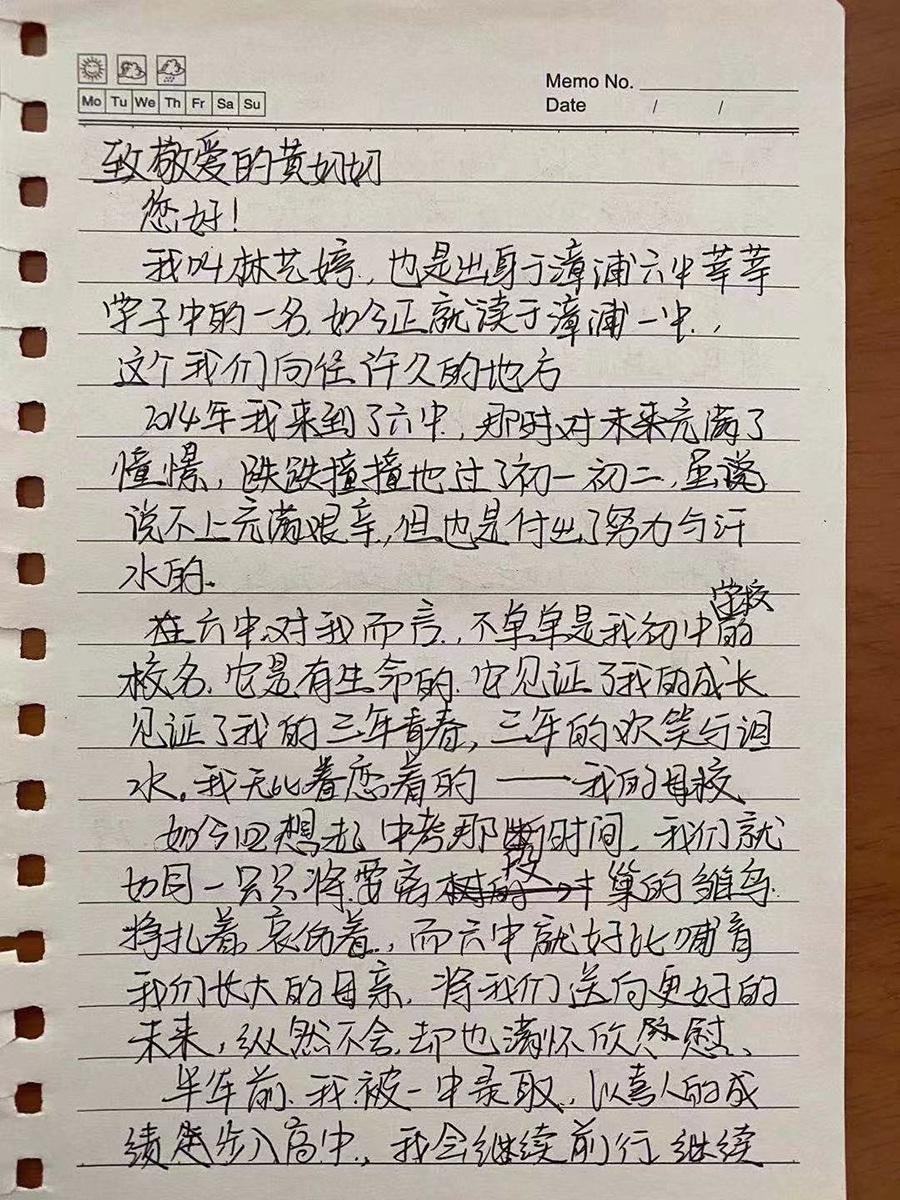 Memo No.
Mo Tu We Th Fr Sa Su
Date / /
致敬爱的黄奶奶
您好！
我叫林艺婷，也是出身于漳浦六中莘莘
学子中的一名，如今正就读于漳浦一中，
这个我们向往许久的地方
2014年我来到了六中，那时对未来充满了
憧憬，跌跌撞撞地过了初一初二，虽说
说不上充满艰辛，但也是付出了努力与汗
水的。
学校
在六中对我而言，不单单是我初中的
校名，它是有生命的，它见证了我的成长
见证了我的三年青春，三年的欢笑与泪
水。我无比眷恋着的——我的母校
如今回想起中考那段时间，我们就
如同一只只将要离巢的雏鸟
挣扎着，哀伤着，而六中就好比哺育
我们长大的母亲，将我们送向更好的
未来，纵然不舍，却也满怀欣慰、
半年前，我被一中录取，以喜人的成
绩步入高中，我会继续前行，继续